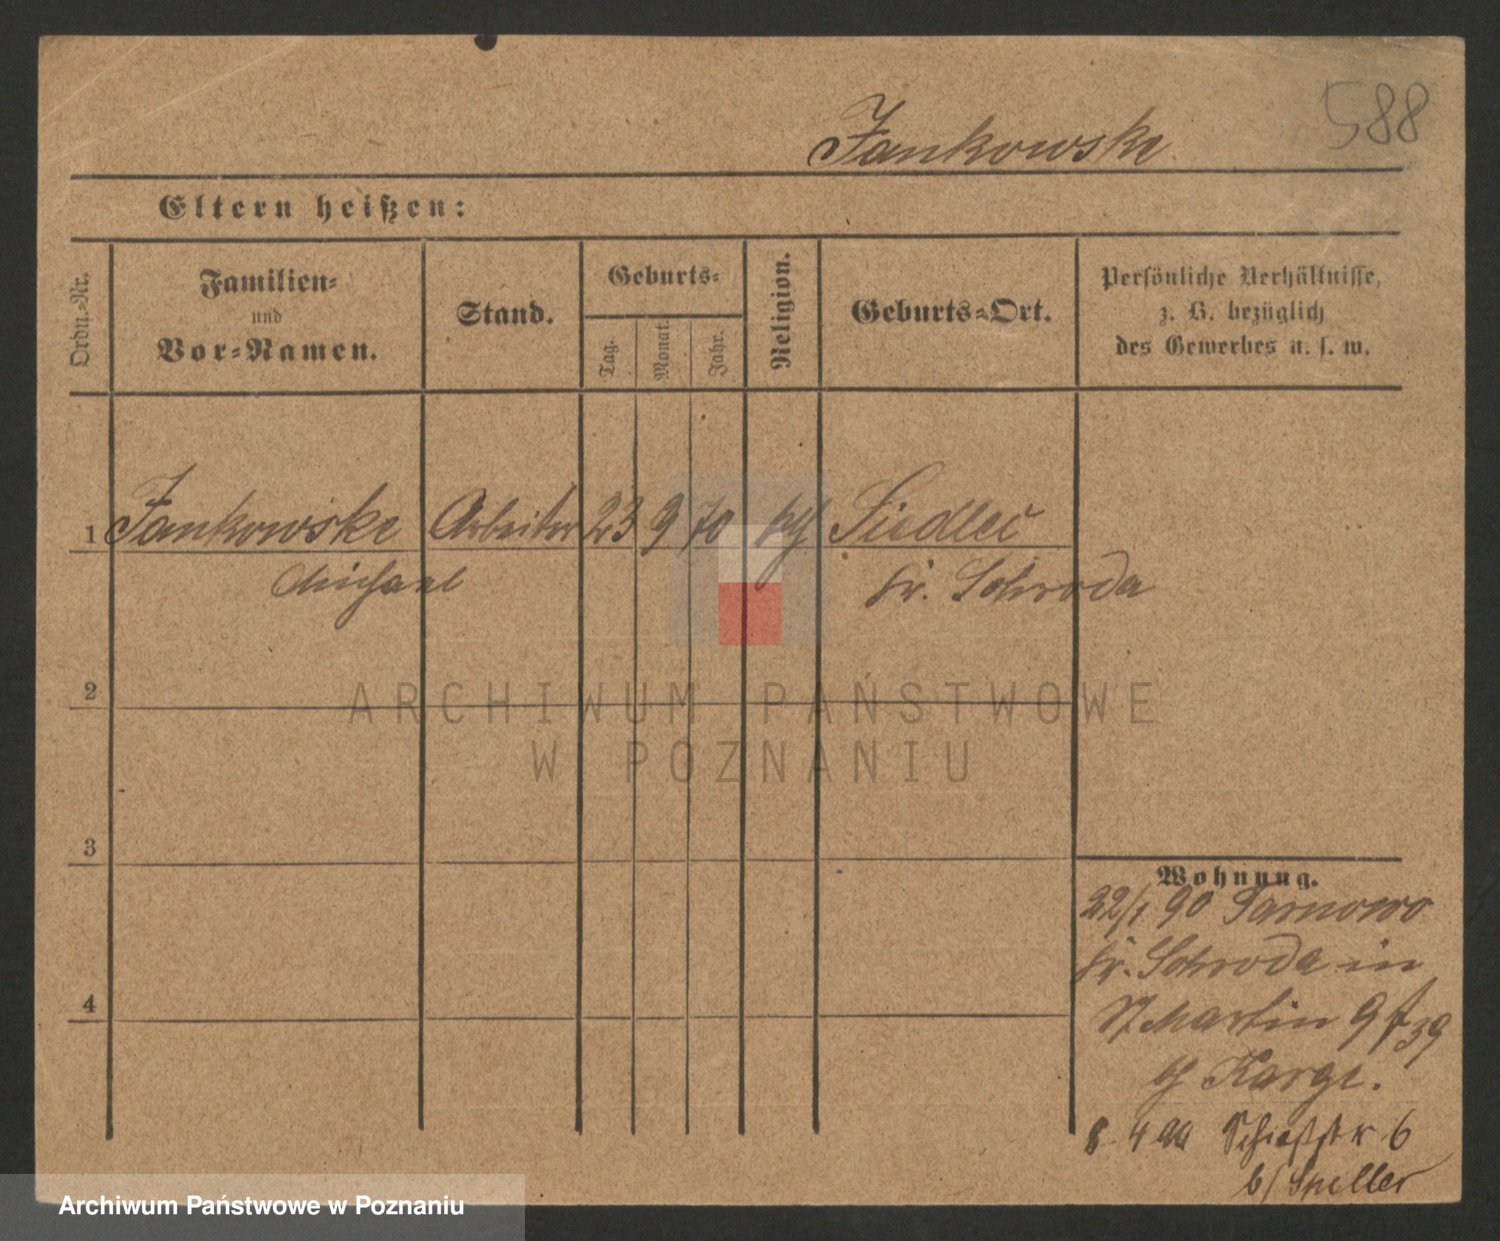 588
Jankowske
Eltern heißen:
Ordn.-Nr.
Familien-
und
Vor-Namen.
Stand.
Geburts-
Tag.
Monat.
Jahr.
Religion.
Geburts-Ort.
Persönliche Verhältnisse,
z. B. bezüglich
des Gewerbes u. s. w.
1 Jankowske Arbeiter 23 9 70 Siedlec
Michael Kr. Schroda
2
ARCHIWUM PAŃSTWOWE
W POZNANIU
3
Wohnung.
22/1 90 Sarnowo
Kr. Schroda in
St Martin 9 39
Karge.
8. 4 Schießstr 6
b/ Speller
4
Archiwum Państwowe w Poznaniu